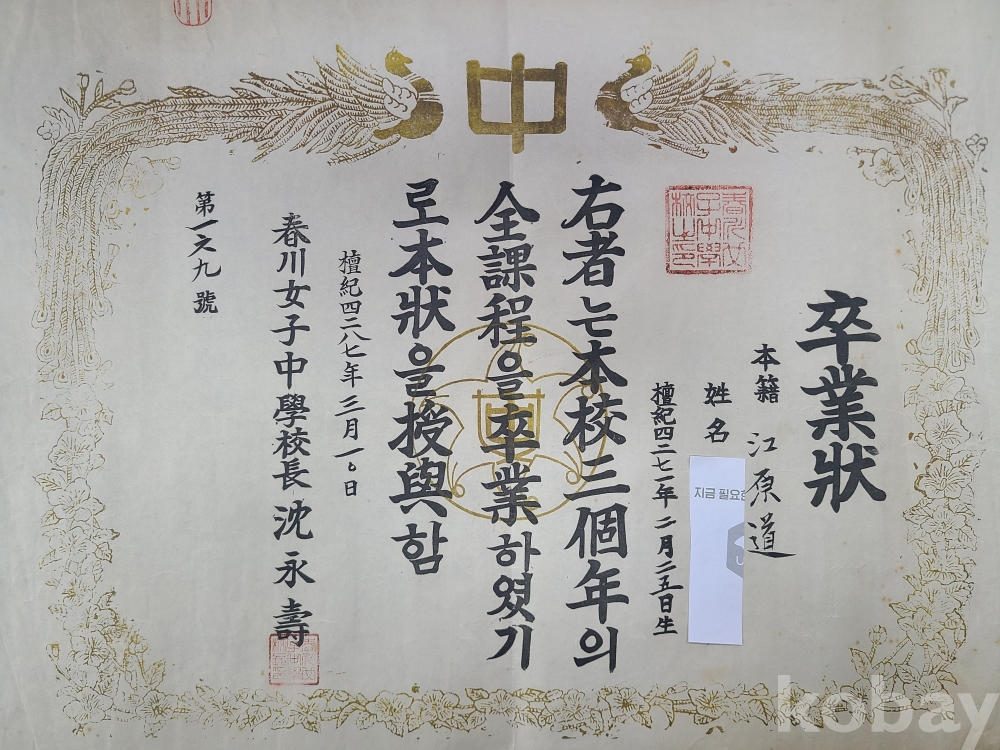 中
卒業狀
本籍 江原道
姓名
지금 필요한
檀紀四二七一年二月二五日生
右者는本校三個年의
全課程을卒業하였기
로本狀을授與함
檀紀四二八七年三月一〇日
春川女子中學校長沈永壽
第一六九號
春川女子中學校之印
kobay